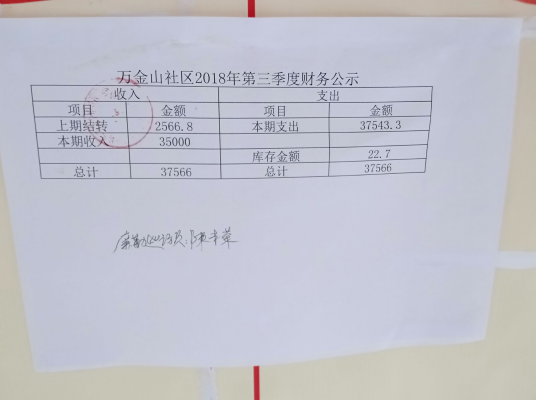 万金山社区2018年第三季度财务公示
收入 支出
项目 金额 项目 金额
上期结转 2566.8 本期支出 37543.3
本期收入 35000
库存金额 22.7
总计 37566 总计 37566